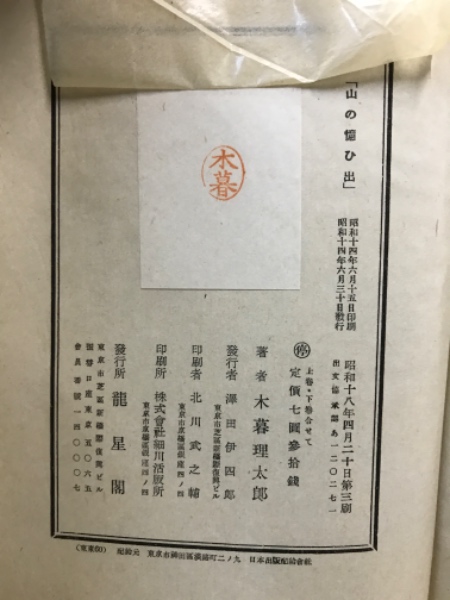 「山の憶ひ出」
昭和十四年六月十五日印刷
昭和十四年六月三十日發行
昭和十八年四月二十日第三刷
出文協承認あ 二〇二七一
停
上卷・下卷合せて
定價七圓參拾錢
著者 木暮理太郎
東京市芝區新橋際復興ビル
發行者 澤田伊四郎
東京市京橋區銀座四ノ四
印刷者 北川武之輔
東京市京橋區銀座四ノ四
印刷所 株式會社細川活版所
發行所 龍星閣
東京市芝區新橋際復興ビル
振替口座東京五〇六五
會員番號一四〇〇〇七
木暮
(東東印) 配給元 東京市神田區淡路町二ノ九 日本出版配給會社